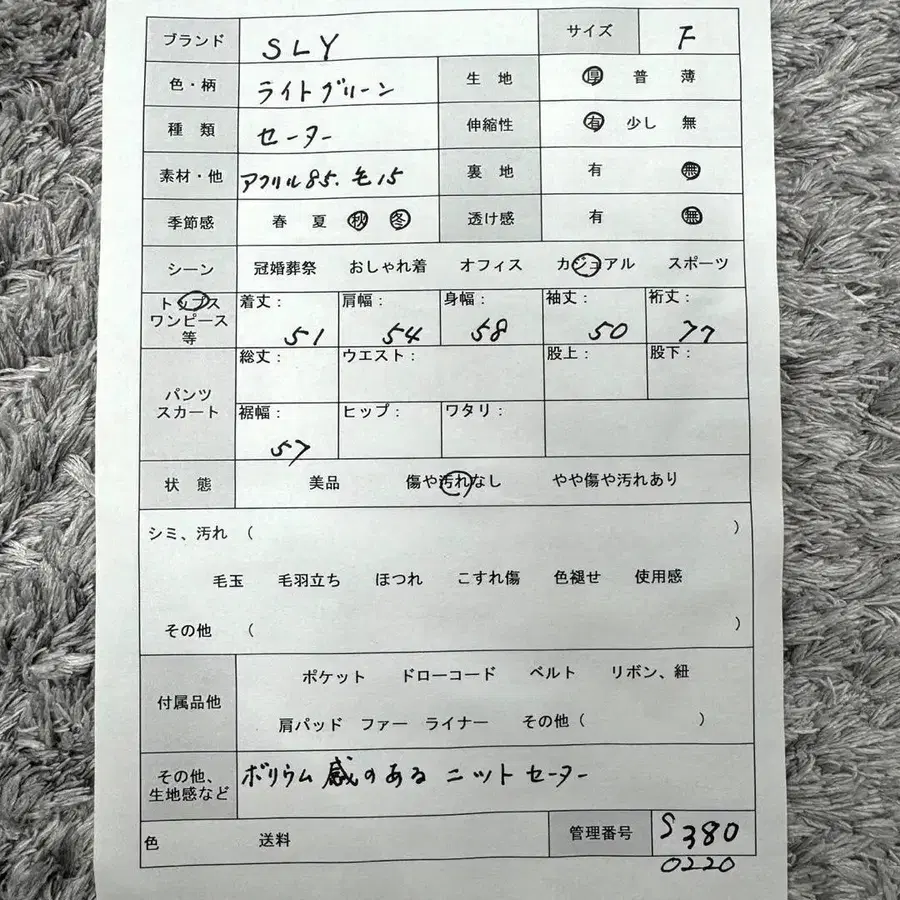 ブランド SLY サイズ F
色・柄 ライトグリーン 生 地 厚 普 薄
種 類 セーター 伸縮性 有 少し 無
素材・他 アクリル85. 毛15 裏 地 有 無
季節感 春 夏 秋 冬 透け感 有 無
シーン 冠婚葬祭 おしゃれ着 オフィス カジュアル スポーツ
トップス ワンピース 等 着丈: 51 肩幅: 54 身幅: 58 袖丈: 50 裄丈: 77
パンツ スカート 総丈: ウエスト: 股上: 股下:
裾幅: 57 ヒップ: ワタリ:
状 態 美品 傷や汚れなし やや傷や汚れあり
シミ、汚れ ( )
毛玉 毛羽立ち ほつれ こすれ傷 色褪せ 使用感
その他 ( )
付属品他 ポケット ドローコード ベルト リボン、紐
肩パッド ファー ライナー その他( )
その他、生地感など ボリウム感のある ニットセーター
色 送料 管理番号 S380
0220